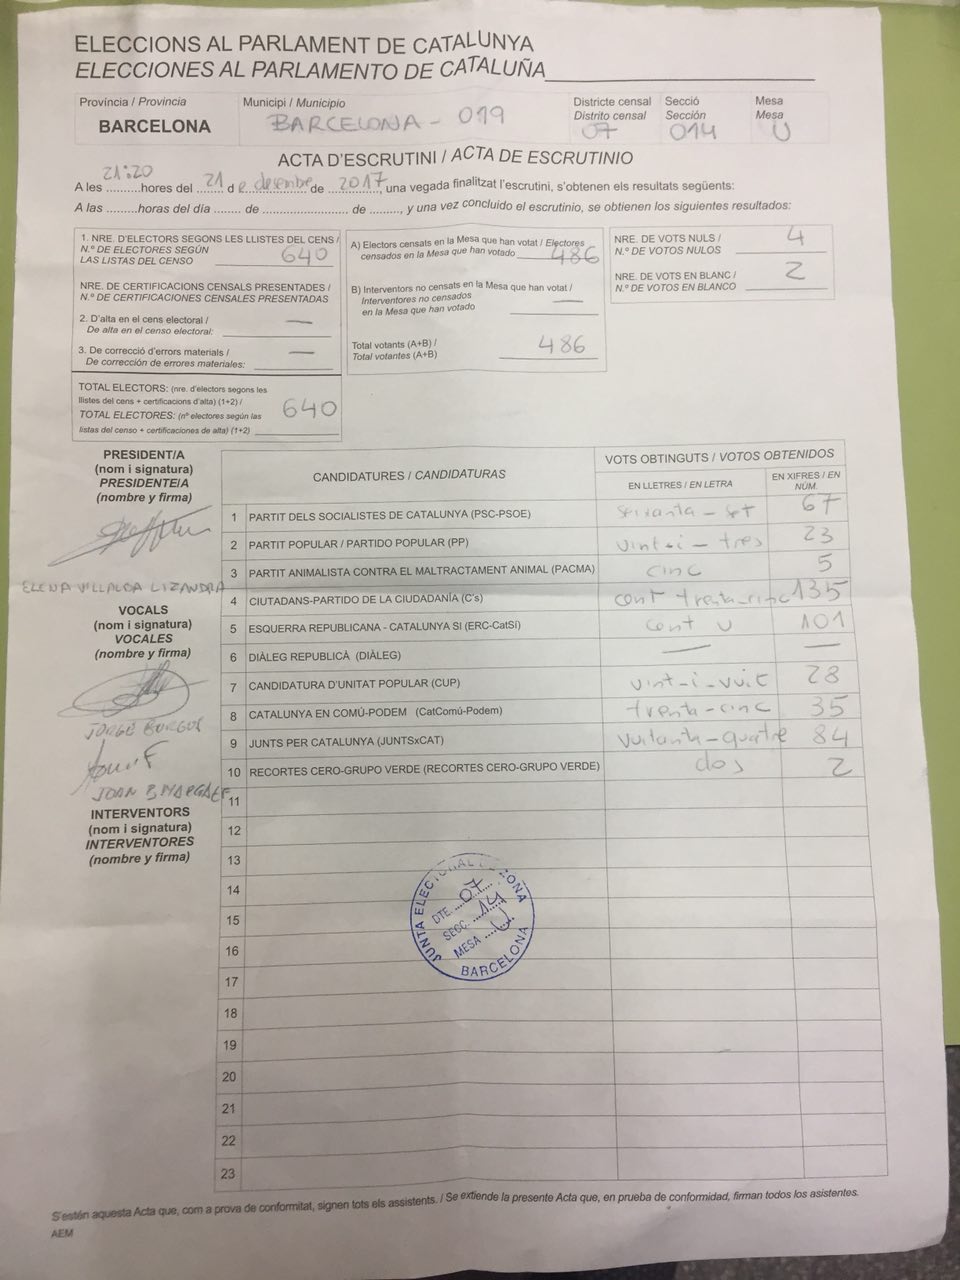 ELECCIONS AL PARLAMENT DE CATALUNYA
ELECCIONES AL PARLAMENTO DE CATALUÑA
Província / Provincia
BARCELONA
Municipi / Municipio
BARCELONA - 019
Districte censal
Distrito censal
07
Secció
Sección
014
Mesa
Mesa
U
ACTA D'ESCRUTINI / ACTA DE ESCRUTINIO
21:20
A les .........hores del ..21.. d e desembre de ..2017.., una vegada finalitzat l'escrutini, s'obtenen els resultats següents:
A las .........horas del día ....... de ....................... de ........, y una vez concluido el escrutinio, se obtienen los siguientes resultados:
1. NRE. D'ELECTORS SEGONS LES LLISTES DEL CENS /
N.º DE ELECTORES SEGÚN
LAS LISTAS DEL CENSO 640
NRE. DE CERTIFICACIONS CENSALS PRESENTADES /
N.º DE CERTIFICACIONES CENSALES PRESENTADAS
2. D'alta en el cens electoral /
De alta en el censo electoral: —
3. De correcció d'errors materials /
De corrección de errores materiales: —
TOTAL ELECTORS: (nre. d'electors segons les
llistes del cens + certificacions d'alta) (1+2) /
TOTAL ELECTORES: (nº electores según las
listas del censo + certificaciones de alta) (1+2) 640
A) Electors censats en la Mesa que han votat / Electores
censados en la Mesa que han votado 486
B) Interventors no censats en la Mesa que han votat /
Interventores no censados
en la Mesa que han votado —
Total votants (A+B) /
Total votantes (A+B) 486
NRE. DE VOTS NULS /
N.º DE VOTOS NULOS 4
NRE. DE VOTS EN BLANC /
N.º DE VOTOS EN BLANCO 2
PRESIDENT/A
(nom i signatura)
PRESIDENTE/A
(nombre y firma)
ELENA VILLALBA LIZANDRA
VOCALS
(nom i signatura)
VOCALES
(nombre y firma)
JORGE BURGOS
JOAN B MARGALEF
INTERVENTORS
(nom i signatura)
INTERVENTORES
(nombre y firma)
CANDIDATURES / CANDIDATURAS
VOTS OBTINGUTS / VOTOS OBTENIDOS
EN LLETRES / EN LETRA
EN XIFRES / EN
NÚM.
1 PARTIT DELS SOCIALISTES DE CATALUNYA (PSC-PSOE) seixanta-set 67
2 PARTIT POPULAR / PARTIDO POPULAR (PP) vint-i-tres 23
3 PARTIT ANIMALISTA CONTRA EL MALTRACTAMENT ANIMAL (PACMA) cinc 5
4 CIUTADANS-PARTIDO DE LA CIUDADANÍA (C's) cent trenta-cinc 135
5 ESQUERRA REPUBLICANA - CATALUNYA SI (ERC-CatSí) cent u 101
6 DIÀLEG REPUBLICÀ (DIÀLEG) — —
7 CANDIDATURA D'UNITAT POPULAR (CUP) vint-i-vuit 28
8 CATALUNYA EN COMÚ-PODEM (CatComú-Podem) trenta-cinc 35
9 JUNTS PER CATALUNYA (JUNTSxCAT) vuitanta-quatre 84
10 RECORTES CERO-GRUPO VERDE (RECORTES CERO-GRUPO VERDE) dos 2
11
12
13
14
15
16
17
18
19
20
21
22
23
JUNTA ELECTORAL DE ZONA
DTE. 07
SECC. 14
MESA U
BARCELONA
S'estén aquesta Acta que, com a prova de conformitat, signen tots els assistents. / Se extiende la presente Acta que, en prueba de conformidad, firman todos los asistentes.
AEM